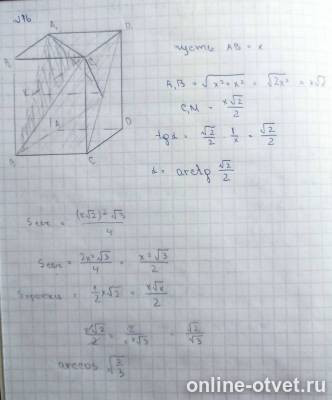 №76
A₁ D₁
B₁ C₁
K
A D
B C
пусть AB = x
A₁B = √x²+x² = √2x² = x√2
C₁M = x√2/2
tg α = √2/2 · 1/x = √2/2
α = arctg √2/2
Sсеч = (x√2)²√3/4
Sсеч = 2x²√3/4 = x²√3/2
= 1/2 x√2 = x√2/2
= √2/√3
arccos
online-otvet.ru